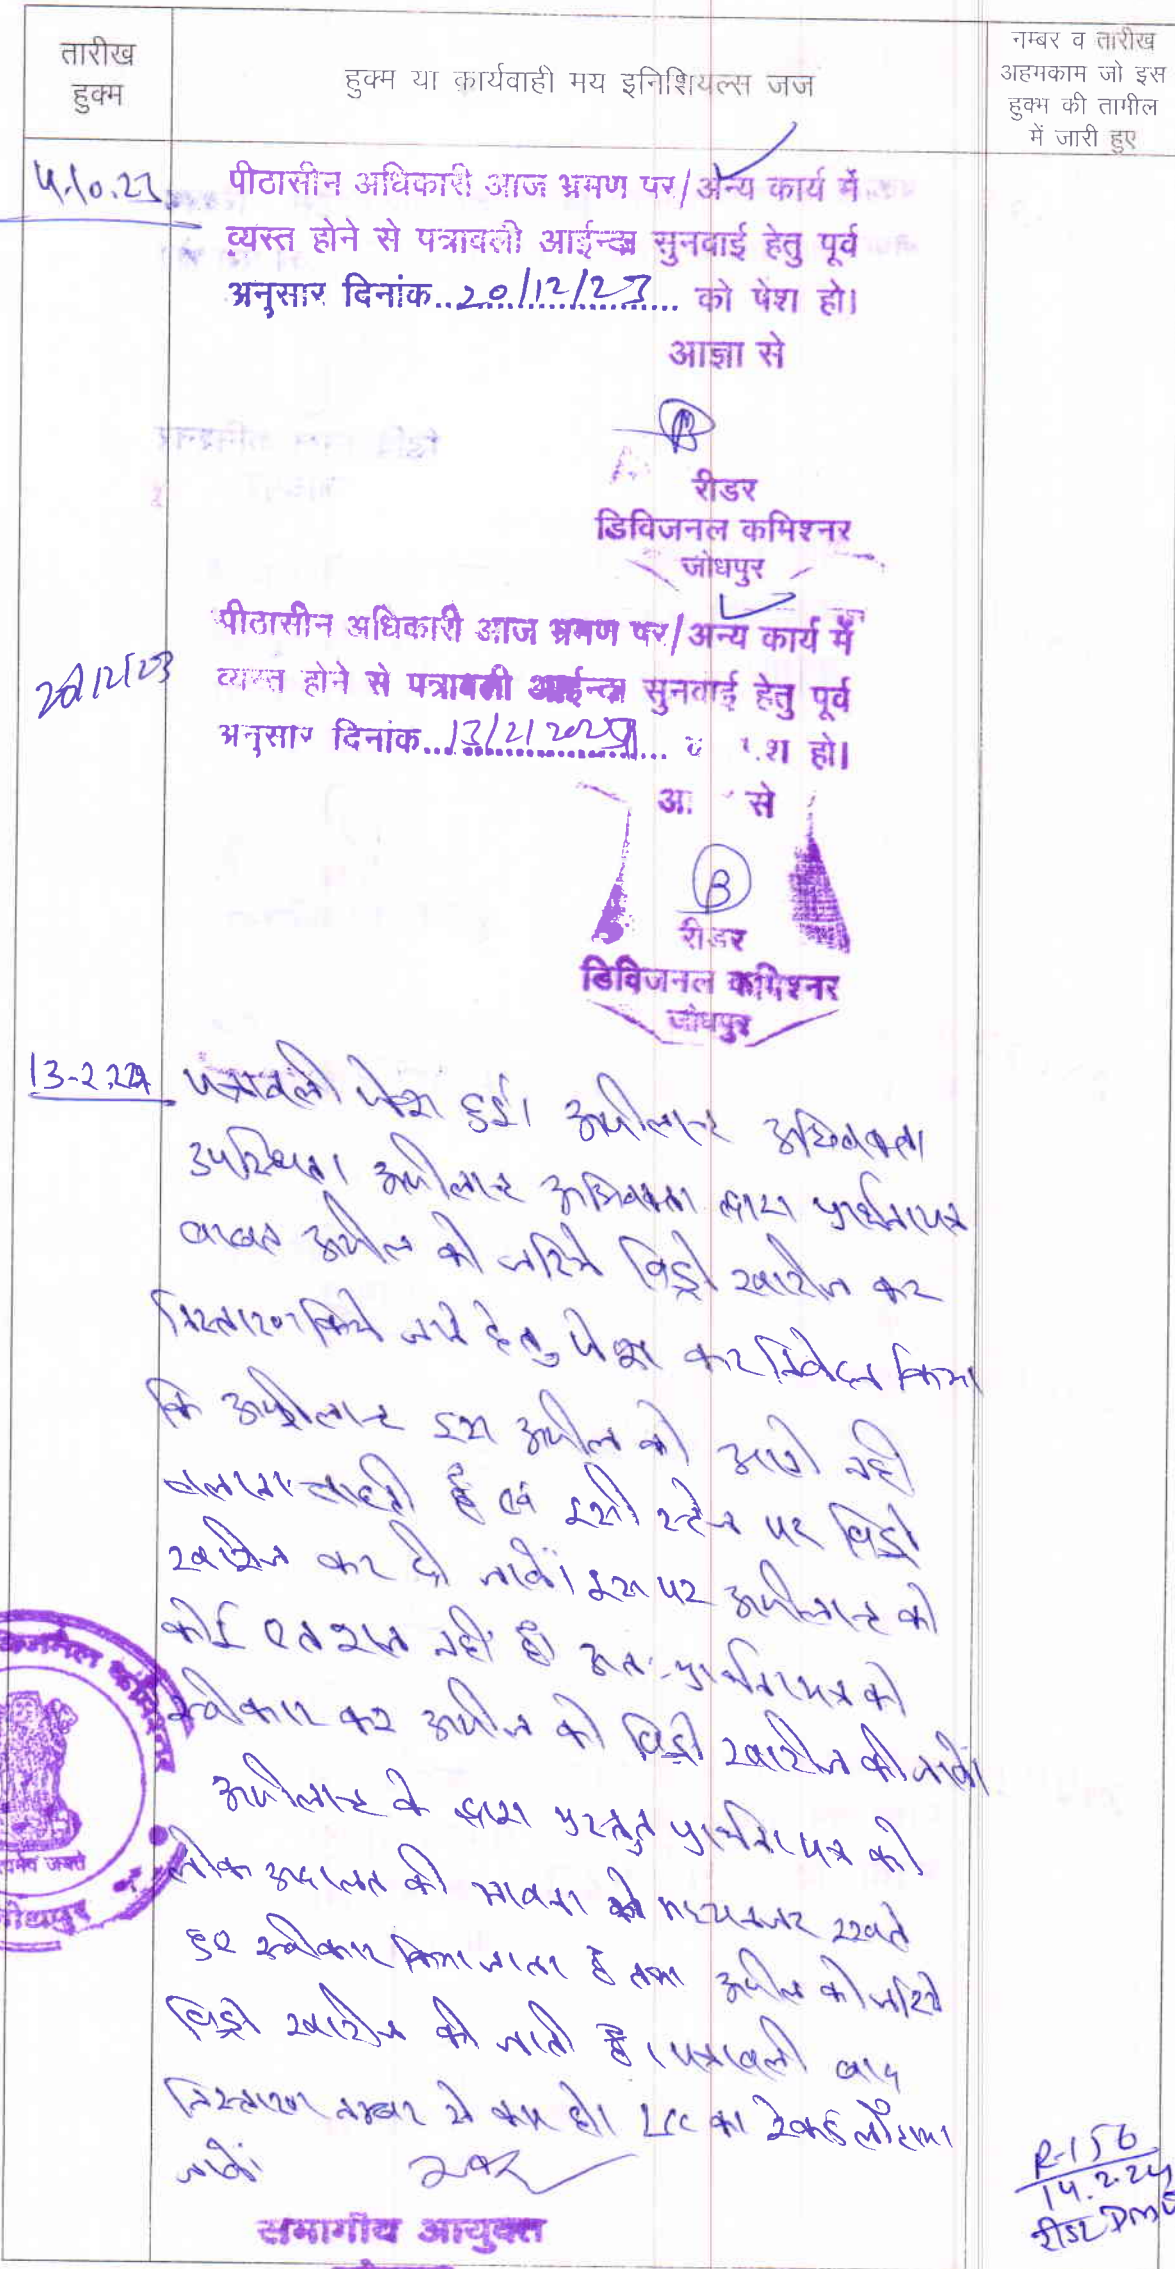 तारीख
हुक्म
हुक्म या कार्यवाही मय इनिशियल्स जज
नम्बर व तारीख
अहमकाम जो इस
हुक्म की तामील
में जारी हुए
4.10.23
पीठासीन अधिकारी आज भ्रमण पर/अन्य कार्य में
व्यस्त होने से पत्रावली आईन्दा सुनवाई हेतु पूर्व
अनुसार दिनांक..20/12/23.. को पेश हो।
आज्ञा से
रीडर
डिविजनल कमिश्नर
जोधपुर
20/12/23
पीठासीन अधिकारी आज भ्रमण पर/अन्य कार्य में
व्यस्त होने से पत्रावली आईन्दा सुनवाई हेतु पूर्व
अनुसार दिनांक..13/2/2024.. हो।
से
B
रीडर
डिविजनल कमिश्नर
जोधपुर
13-2-24
पत्रावली पेश हुई। अपीलान्ट अधिवक्ता
उपस्थित। अपीलान्ट अधिवक्ता द्वारा प्रार्थनापत्र
बाबत अपील को जरिये विड्रो खारीज कर
निस्तारण किये जाने हेतु पेश कर निवेदन किया
कि अपीलान्ट इस अपील को आगे नहीं
चलाना चाहती है एवं इसी स्टेज पर विड्रो
खारीज कर दी जावें। इस पर अपीलान्ट को
कोई एतराज नहीं है। अतः प्रार्थनापत्र को
स्वीकार कर अपील को विड्रो खारीज की जावें।
अपीलान्ट के द्वारा प्रस्तुत प्रार्थनापत्र को
लोक अदालत की भावना को मध्यनजर रखते
हुए स्वीकार किया जाता है तथा अपील को जरिये
विड्रो खारीज की जाती है। पत्रावली बाद
निस्तारण नम्बर से कम हो। LCC का रेकर्ड लौटाया
जावें
संभागीय आयुक्त
जोधपुर
R-156
14.2.24
रीडर